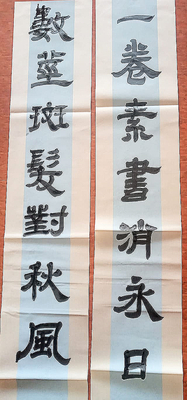 一卷素書消永日
數莖斑髮對秋風